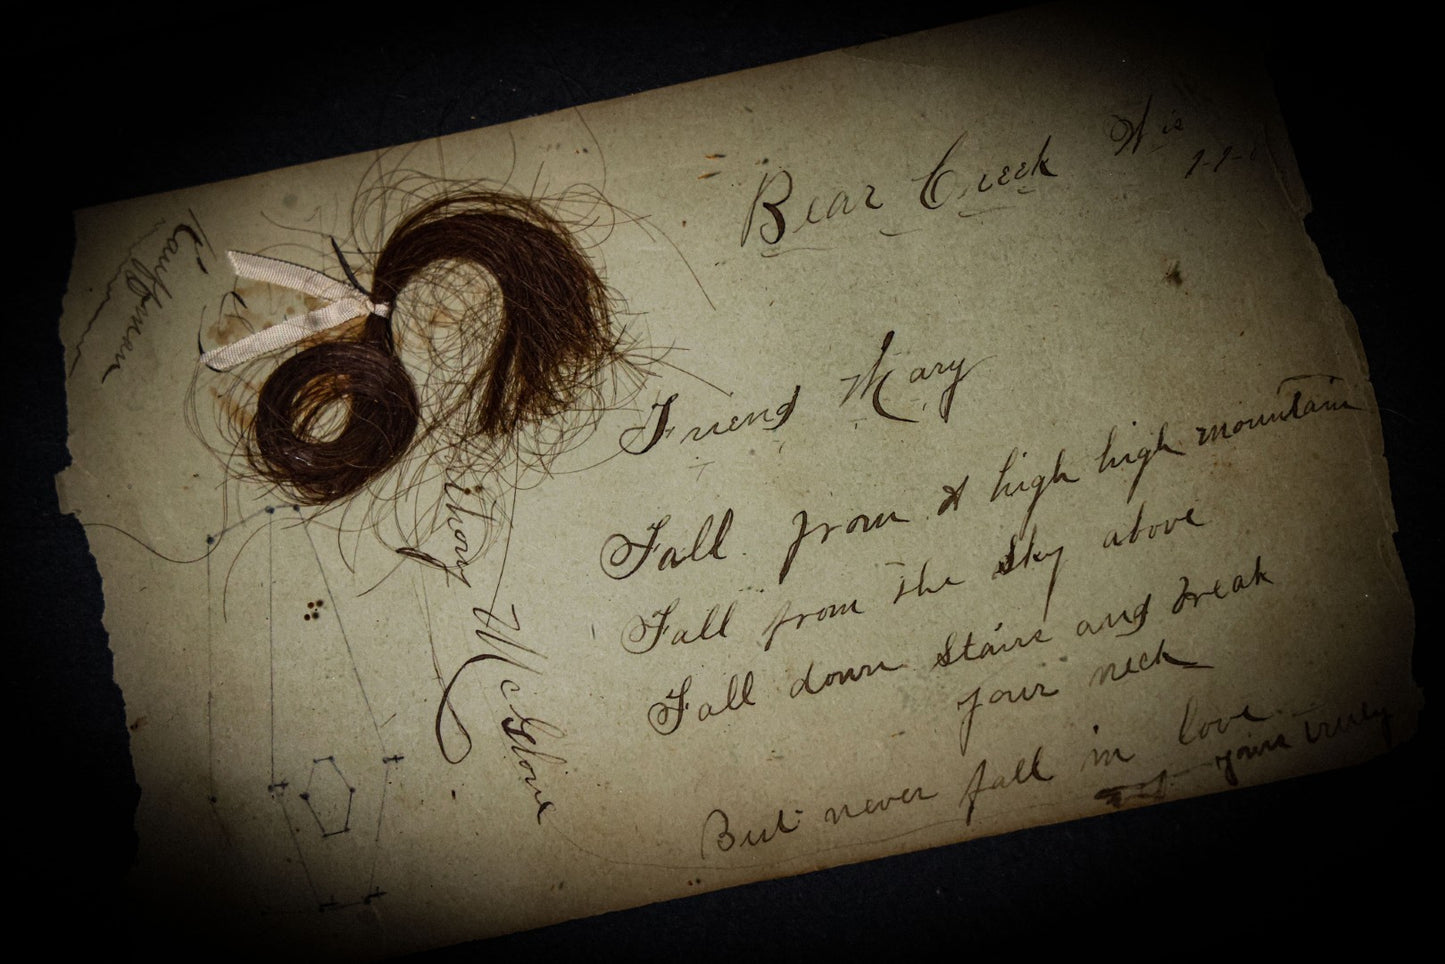 Bear Creek Wis
Friend Mary
Fall from A high high mountain
Fall from the sky above
Fall down stairs and break
your neck
But never fall in love.
yours truly
McGlone